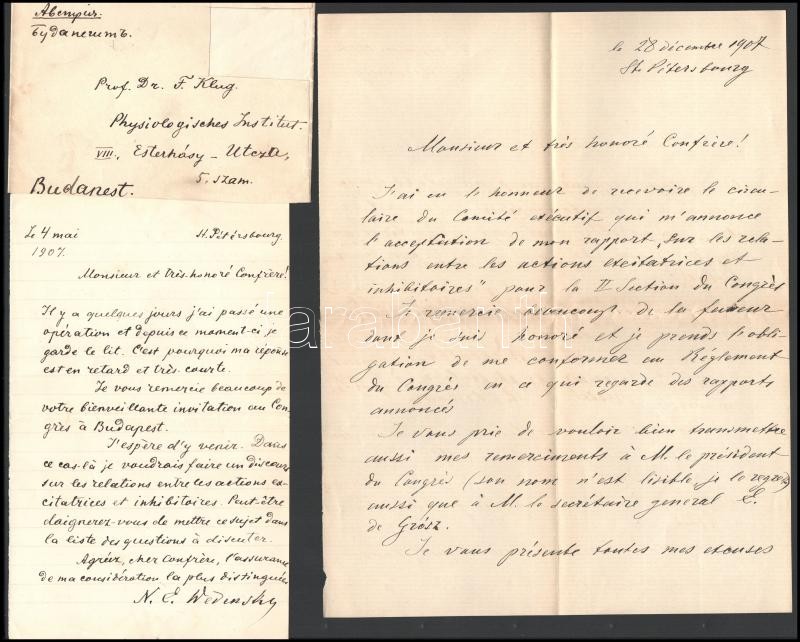 Австрія.
Будапештъ.
Prof. Dr. F. Klug.
Physiologisches Institut.
VIII., Esterházy-Utcza,
5. szam.
Budapest.
Le 4 mai St. Pétersbourg.
1907.
Monsieur et très-honoré Confrère!
Il y a quelques jours j'ai passé une
opération et depuis ce moment-ci je
garde le lit. C'est pourquoi ma réponse
est en retard et très-courte.
Je vous remercie beaucoup de
votre bienveillante invitation au Con-
grès à Budapest.
J'espère d'y venir. Dans
ce cas-là je voudrais faire un discours
sur les relations entre les actions ex-
citatrices et inhibitoires. Peut-être
daignerez-vous de mettre ce sujet dans
la liste des questions à discuter.
Agréez, cher Confrère, l'assurance
de ma considération la plus distinguée
N. E. Wedensky
le 28 décembre 1907
St. Pétersbourg
Monsieur et très honoré Confrère!
J'ai eu le honneur de recevoire le circu-
laire du Comité exécutif qui m'annonce
l'acceptation de mon rapport „Sur les rela-
tions entre les actions excitatrices et
inhibitoires" pour la II Section du Congrès
Je remercie beaucoup de la faveur
dont je suis honoré et je prends l'obli-
gation de me conformer au Réglement
du Congrès en ce qui regarde des rapports
annoncés
Je vous prie de vouloir bien transmettre
aussi mes remerciments à M. le président
du Congrès (son nom n'est lisible, je le regrette)
aussi que à M. le secrétaire general E.
de Grósz.
Je vous présente toutes mes excuses
darabanth